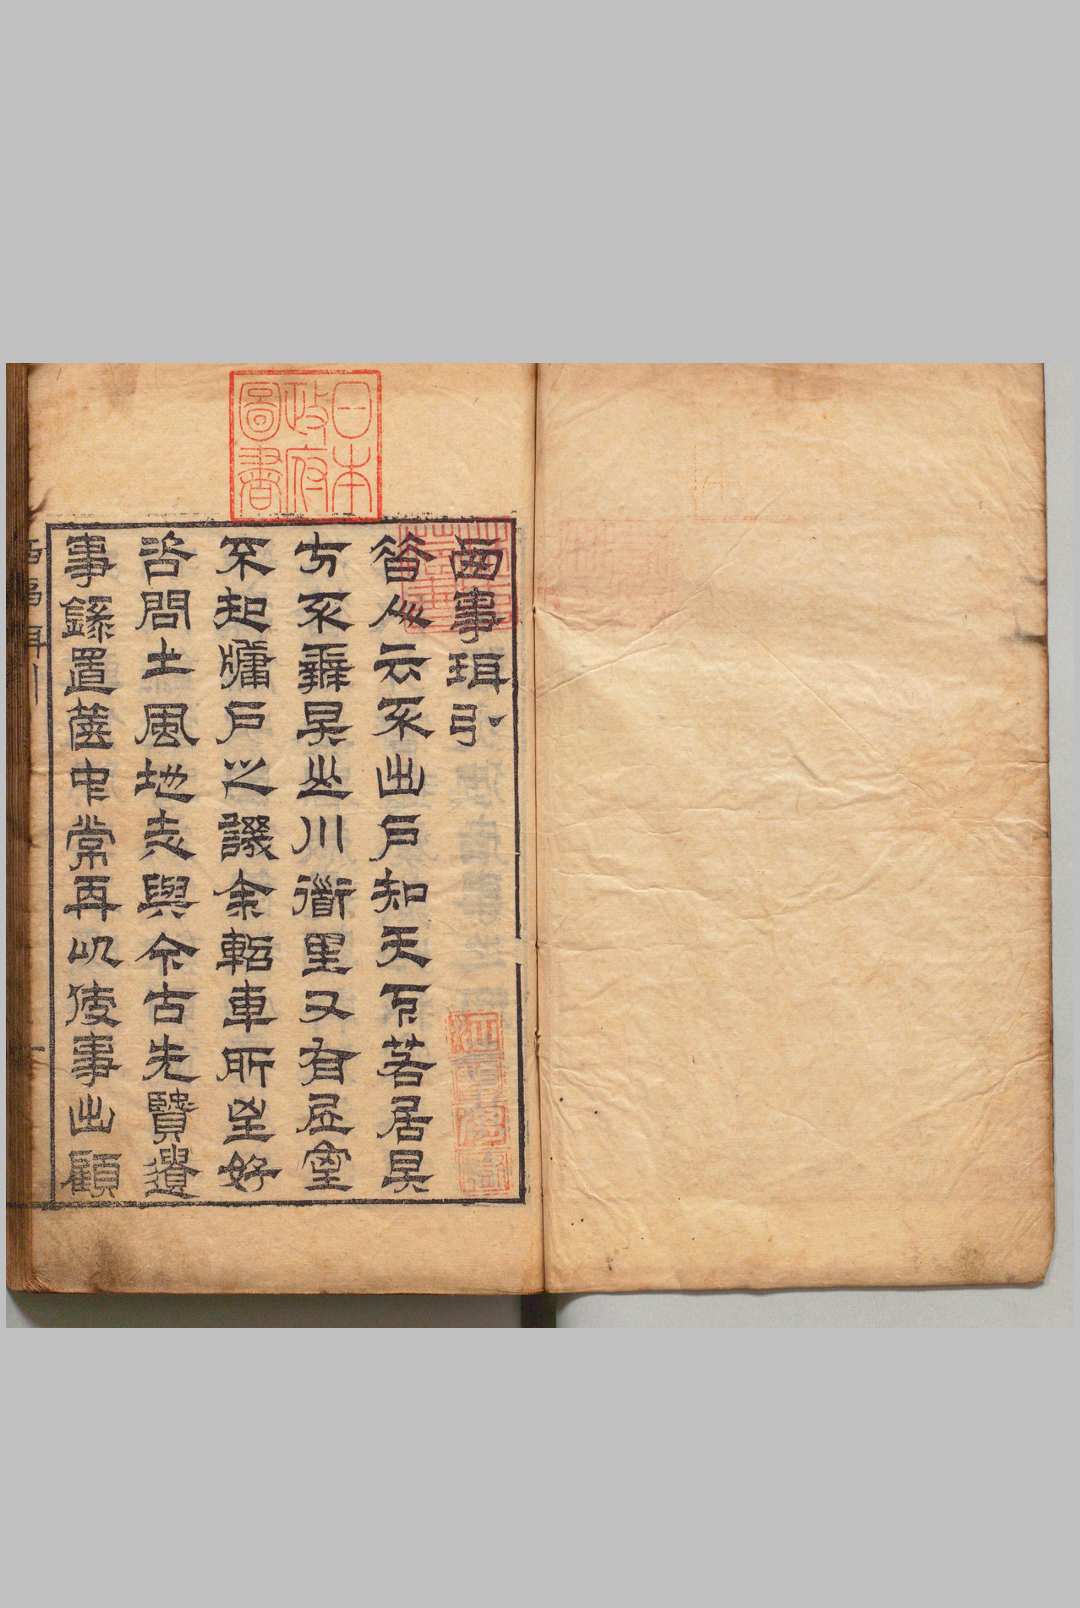 西事珥引
昔人云不出戶知天下若居是
方不彝是山川衟里又有屈室
不起牖戶之譏余軺車所至好
咨問土風地志與今古先賢遺
事錄置箧中嘗再以使事出顧
日本
政府
圖書